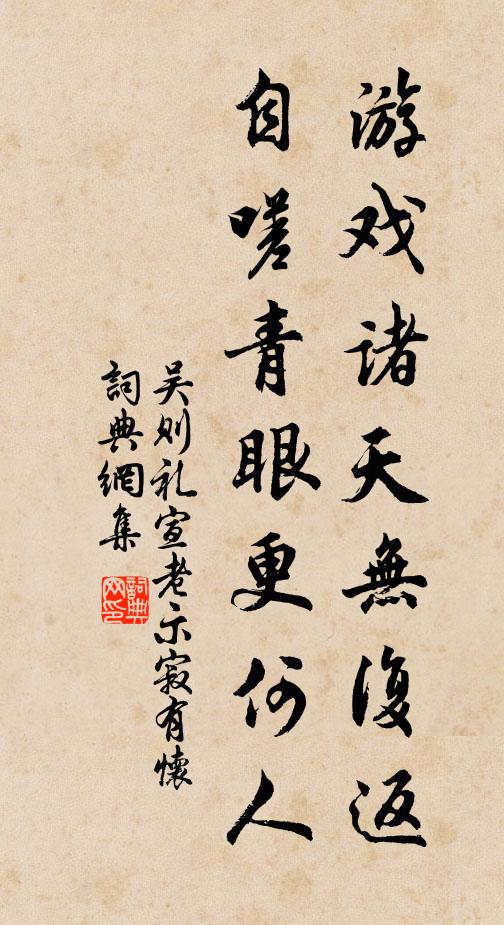 游戏诸天無復返
自嗟青眼更何人
吴则礼宣老示寂有懷
詞典網集
詞典网印